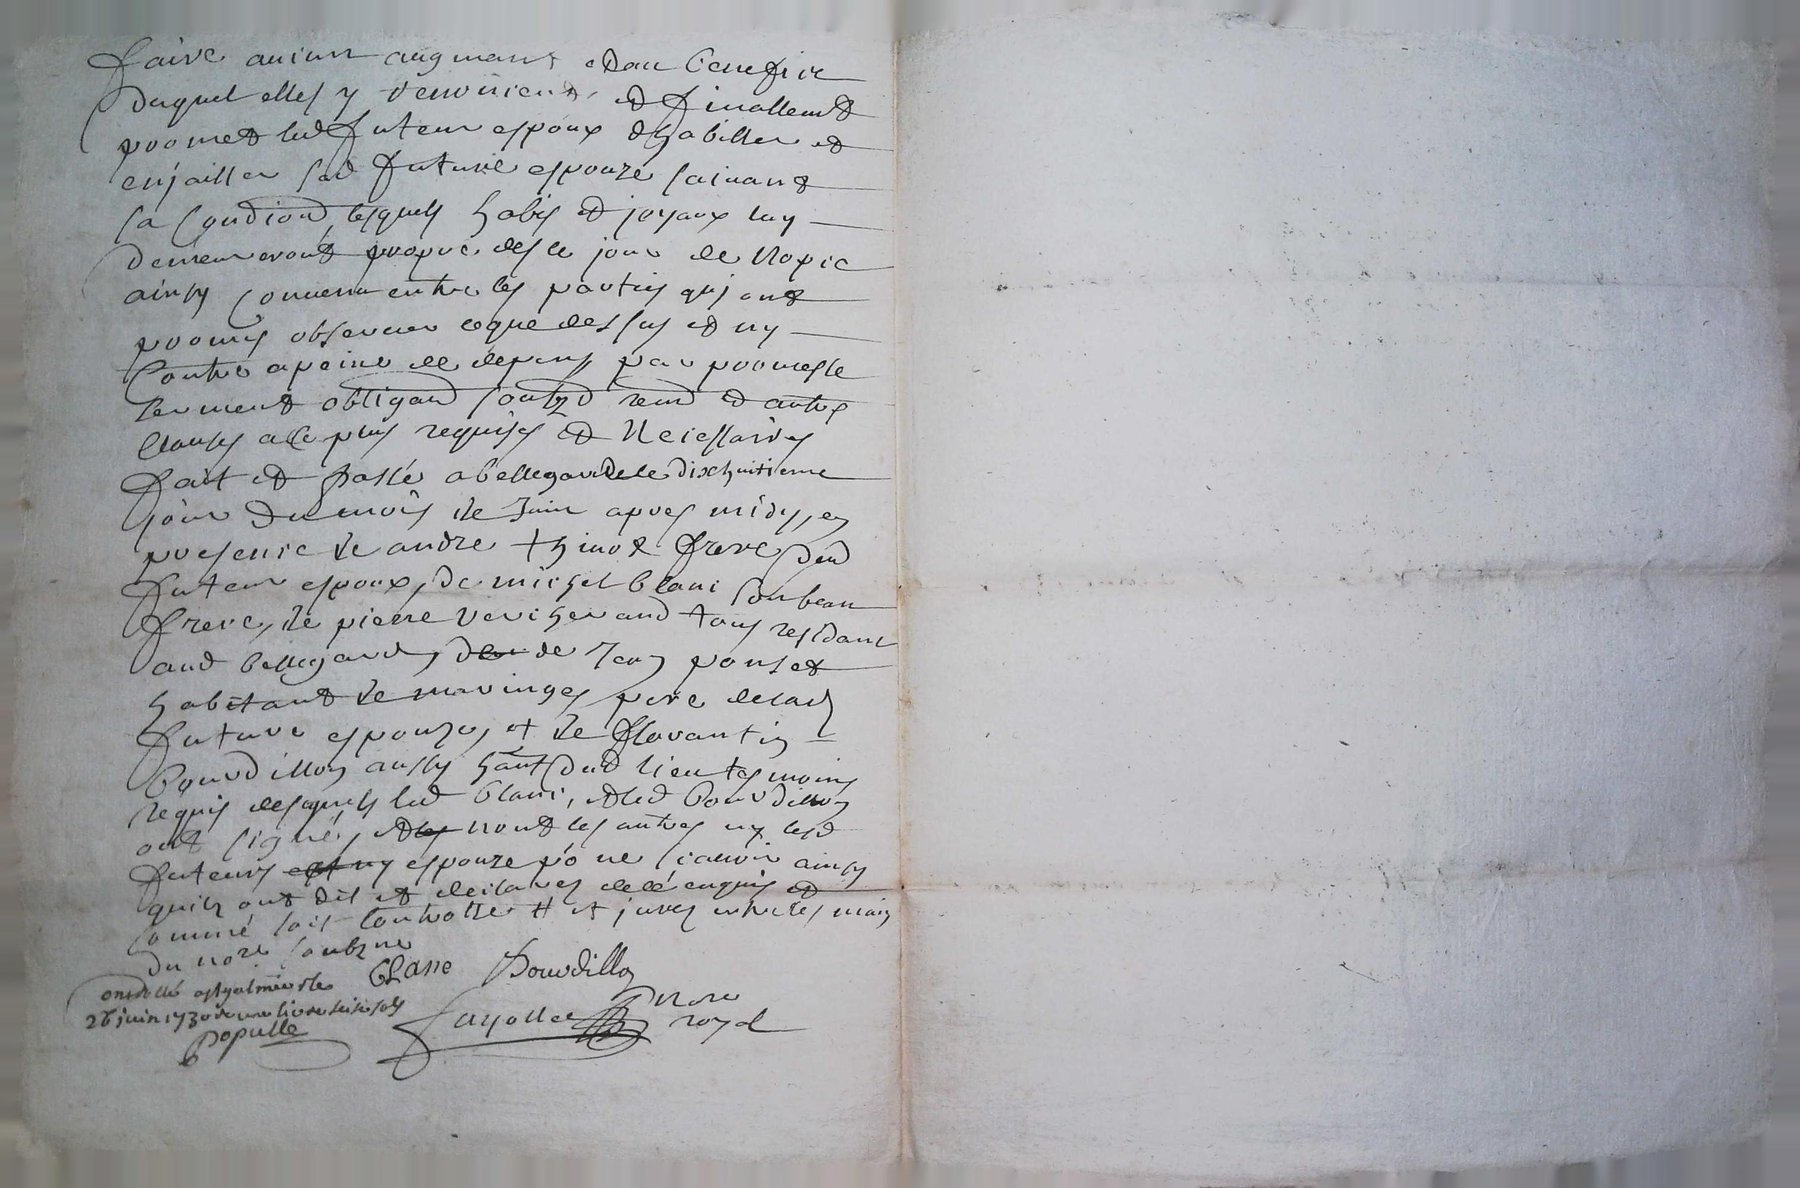 faire aucun augmant et au benefice
duquel elles y renoncent, et finallement
promet led futeur espoux d'habiller et
enjailler sad future espouze suivant
sa condiond, lesquels habis et joyaux luy
demeureront propre des le jour de nopce
ainsy convenu entre les parties qui ont
promis observer ceque dessus et ny
contre a peine de depens par promesse
serment obligaond soubzd renond et autres
clauses ad ce plus requises et necessaires
fait et passé a bellegarde le dixhuitieme
jour du mois de juin apres midy, en
presence de andre thinot frere dud
futeur espoux, de michel blanc son beau
frere, de pierre vericherand tous residant
aud bellegarde, de jean poncet
habitant de maringes pere de lad
future espouze, et de florantin
bourdillon aussy hant dud lieu tesmoins
requis desquels led blanc, et led bourdillon
ont signés, et non les autres ny lesd
futeurs espouze po ne scavoir ainsy
quilz ont dit et declarés de ce enquis et
sommé soit controllé et jurés entre les mains
du nore soubzne
Blanc Bourdillon
ontrollé a st galmier le
26 juin 1730 r une livre seise sols
Populle
fayolle nore
royal